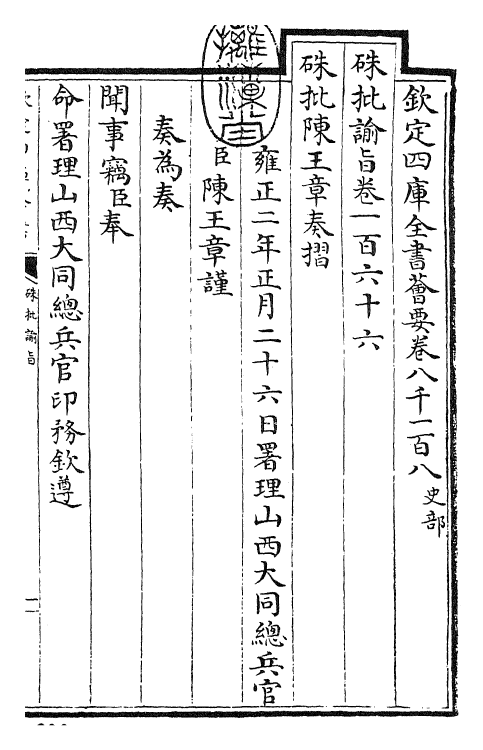 欽定四庫全書薈要卷八千一百八 史部
硃批諭旨卷一百六十六
硃批陳王章奏摺
雍正二年正月二十六日署理山西大同總兵官
臣陳王章謹
奏為奏
聞事竊臣奉
命署理山西大同總兵官印務欽遵
硃批諭旨
一